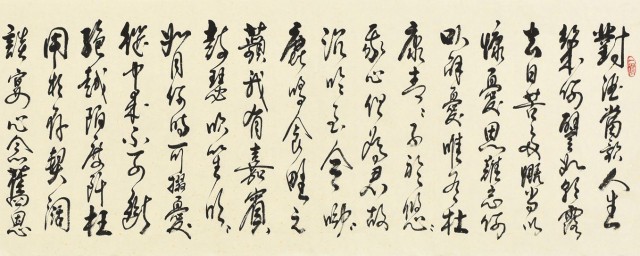 對酒當歌人生
幾何譬如朝露
去日苦多慨當以
慷憂思難忘何
以解憂唯有杜
康青々子衿悠々
我心但為君故
沉吟至今呦々
鹿鳴食野之
蘋我有嘉賓
鼓瑟吹笙明々
如月何時可掇憂
從中來不可斷
絕越陌度阡枉
用相存契闊
談宴心念舊恩